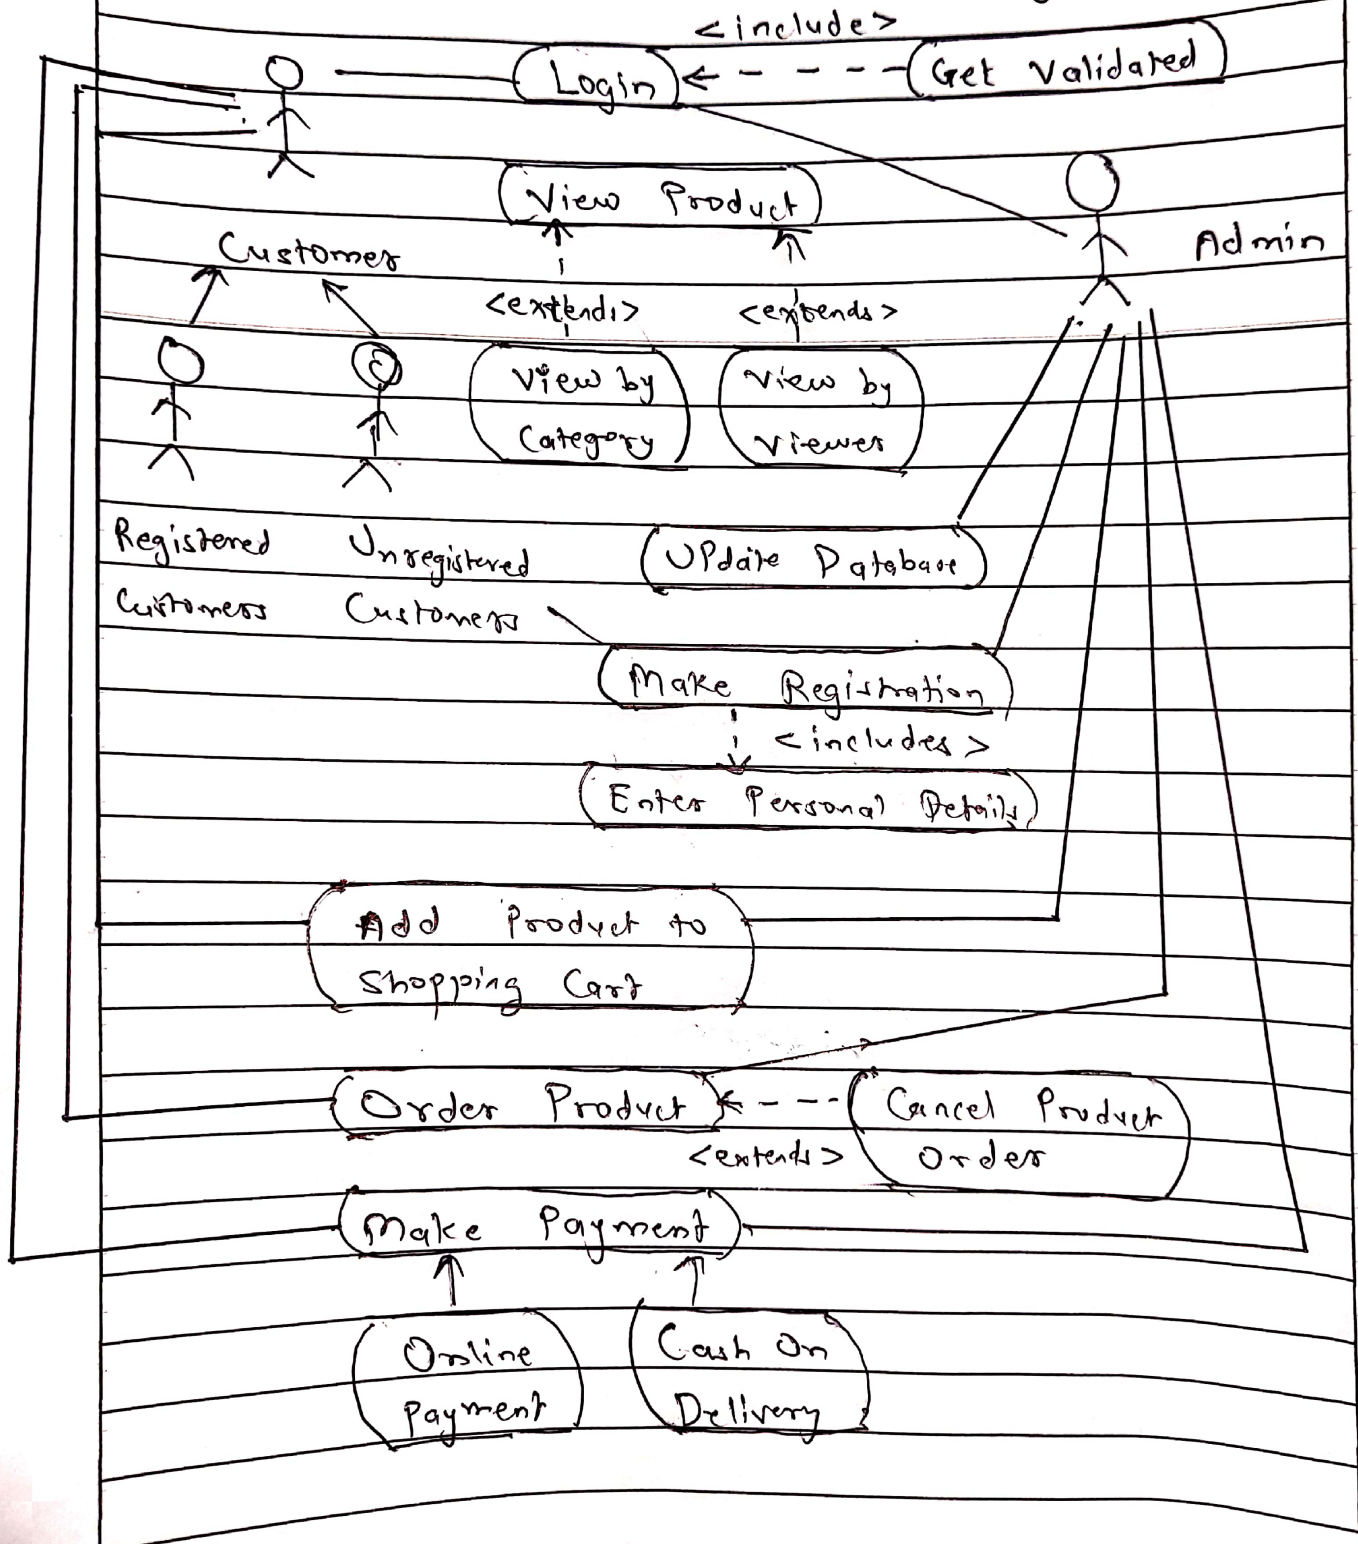 <include>
Login
Get Validated
View Product
Customer
Admin
<extends>
<extends>
View by
Category
View by
Viewer
Registered
Customers
Unregistered
Customers
Update Database
Make Registration
<includes>
Enter Personal Details
Add Product to
Shopping Cart
Order Product
Cancel Product
Order
<extends>
Make Payment
Online
Payment
Cash On
Delivery